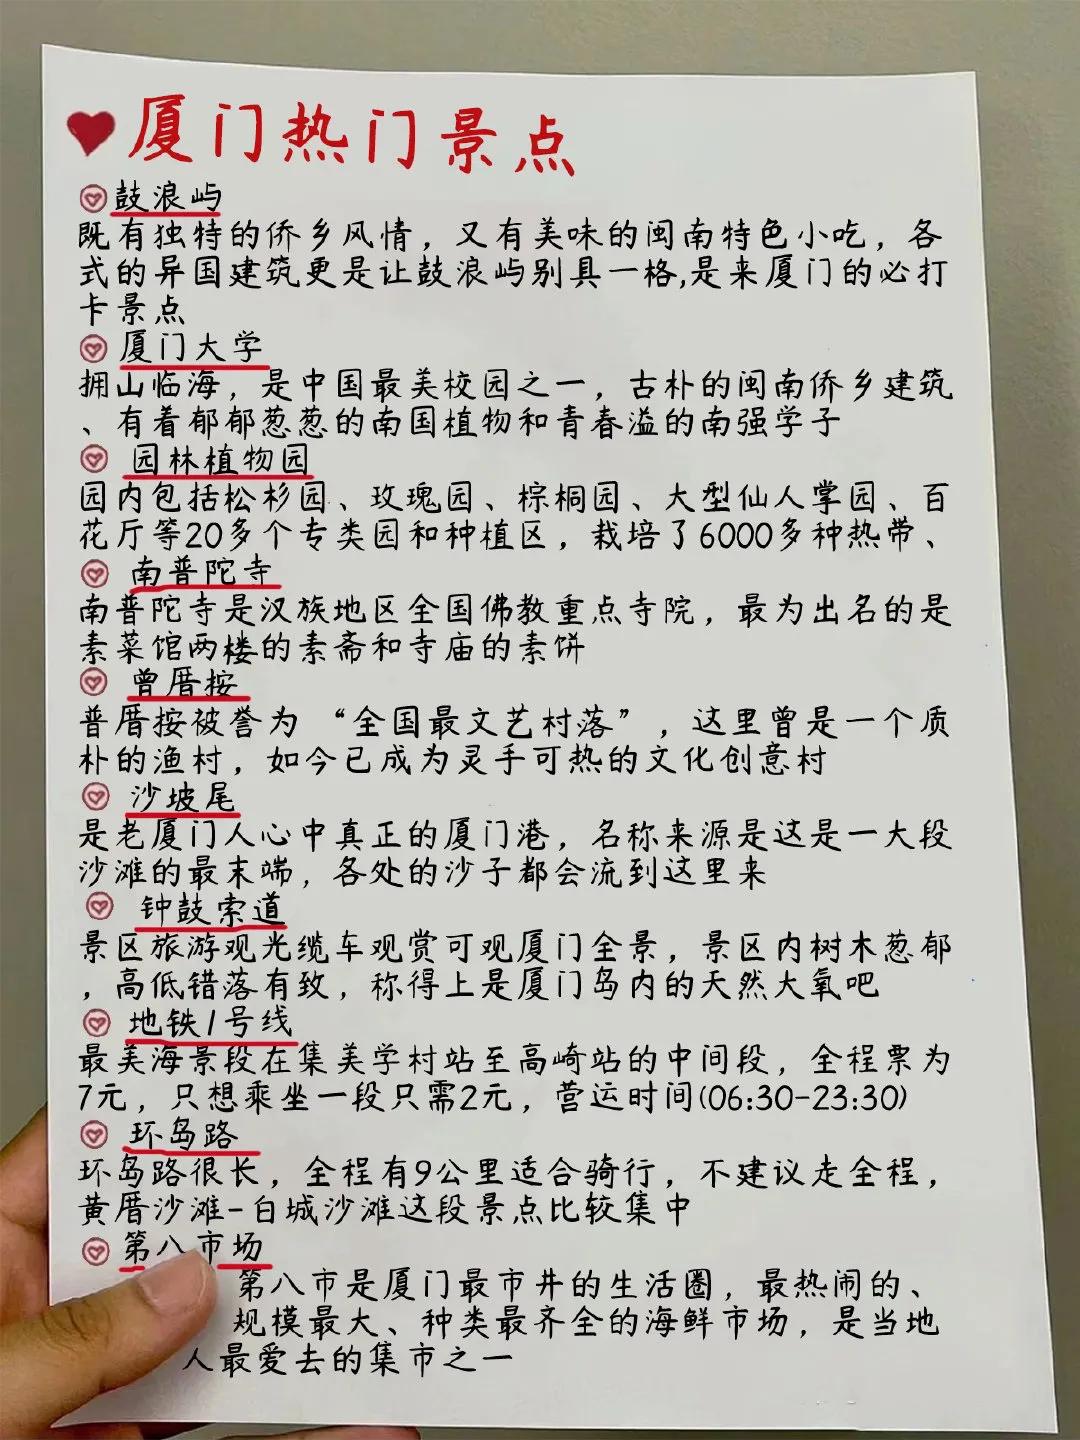 厦门热门景点
鼓浪屿
既有独特的侨乡风情，又有美味的闽南特色小吃，各
式的异国建筑更是让鼓浪屿别具一格,是来厦门的必打
卡景点
厦门大学
拥山临海，是中国最美校园之一，古朴的闽南侨乡建筑
、有着郁郁葱葱的南国植物和青春溢的南强学子
园林植物园
园内包括松杉园、玫瑰园、棕桐园、大型仙人掌园、百
花厅等20多个专类园和种植区，栽培了6000多种热带、
南普陀寺
南普陀寺是汉族地区全国佛教重点寺院，最为出名的是
素菜馆两楼的素斋和寺庙的素饼
曾厝按
普厝按被誉为 “全国最文艺村落”，这里曾是一个质
朴的渔村，如今已成为灵手可热的文化创意村
沙坡尾
是老厦门人心中真正的厦门港，名称来源是这是一大段
沙滩的最末端，各处的沙子都会流到这里来
钟鼓索道
景区旅游观光缆车观赏可观厦门全景，景区内树木葱郁
，高低错落有致，称得上是厦门岛内的天然大氧吧
地铁1号线
最美海景段在集美学村站至高崎站的中间段，全程票为
7元，只想乘坐一段只需2元，营运时间(06:30-23:30)
环岛路
环岛路很长，全程有9公里适合骑行，不建议走全程，
黄厝沙滩-白城沙滩这段景点比较集中
第八市场
第八市是厦门最市井的生活圈，最热闹的、
规模最大、种类最齐全的海鲜市场，是当地
人最爱去的集市之一